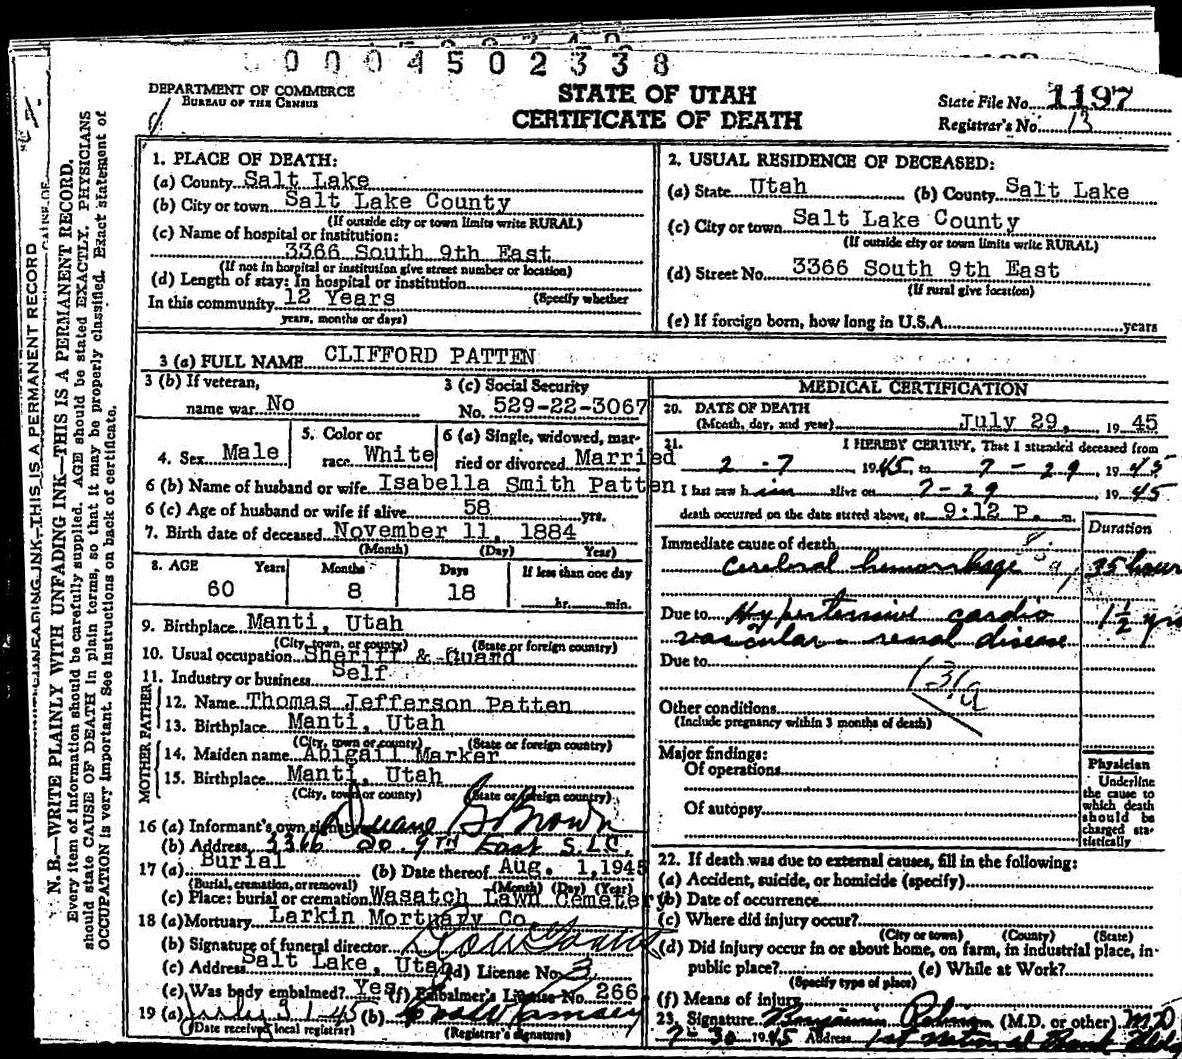 0004502338
DEPARTMENT OF COMMERCE
BUREAU OF THE CENSUS
STATE OF UTAH
CERTIFICATE OF DEATH
State File No. 1197
Registrar's No. 13
N.B.—WRITE PLAINLY WITH UNFADING INK—THIS IS A PERMANENT RECORD.
Every item of information should be carefully supplied. AGE should be stated EXACTLY. PHYSICIANS
should state CAUSE OF DEATH in plain terms, so that it may be properly classified. Exact statement of
OCCUPATION is very important. See instructions on back of certificate.
1. PLACE OF DEATH:
(a) County Salt Lake
(b) City or town Salt Lake County
(If outside city or town limits write RURAL)
(c) Name of hospital or institution:
3366 South 9th East
(If not in hospital or institution give street number or location)
(d) Length of stay: In hospital or institution
In this community 12 Years (Specify whether
years, months or days)
2. USUAL RESIDENCE OF DECEASED:
(a) State Utah (b) County Salt Lake
(c) City or town Salt Lake County
(If outside city or town limits write RURAL)
(d) Street No. 3366 South 9th East
(If rural give location)
(e) If foreign born, how long in U.S.A. years
3 (a) FULL NAME CLIFFORD PATTEN
3 (b) If veteran,
name war No
3 (c) Social Security
No. 529-22-3067
4. Sex Male
5. Color or
race White
6 (a) Single, widowed, mar-
ried or divorced Married
6 (b) Name of husband or wife Isabella Smith Patten
6 (c) Age of husband or wife if alive 58 yrs.
7. Birth date of deceased November 11, 1884
(Month) (Day) Year)
8. AGE Years Months Days If less than one day
60 8 18 hr. min.
9. Birthplace Manti, Utah
(City, town, or county) (State or foreign country)
10. Usual occupation Sheriff & Guard
11. Industry or business Self
FATHER
12. Name Thomas Jefferson Patten
13. Birthplace Manti, Utah
(City, town or county) (State or foreign country)
MOTHER
14. Maiden name Abigail Marker
15. Birthplace Manti, Utah
(City, town or county) (State or foreign country)
16 (a) Informant's own signature Duane G Brown
(b) Address 3366 So. 9TH East S.L.C.
17 (a) Burial (b) Date thereof Aug. 1, 1945
(Burial, cremation, or removal) (Month) (Day) (Year)
(c) Place: burial or cremation Wasatch Lawn Cemetery
18 (a) Mortuary Larkin Mortuary Co.
(b) Signature of funeral director
(c) Address Salt Lake, Utah (d) License No. 3
(e) Was body embalmed? Yes (f) Embalmer's License No. 266
19 (a) (b)
(Date received local registrar) (Registrar's signature)
MEDICAL CERTIFICATION
20. DATE OF DEATH
(Month, day, and year) July 29, 1945
21. I HEREBY CERTIFY, That I attended deceased from
2-7 1945 to 7-29, 1945
I last saw him alive on 7-29 1945
death occurred on the date stated above, at 9:12 P. m.
Duration
Immediate cause of death
Cerebral hemorrhage 35 hours
Due to Hypertensive cardio 1½ yrs
vascular - renal disease
Due to
131a
Other conditions
(Include pregnancy within 3 months of death)
Major findings:
Of operations
Of autopsy
Physician
Underline
the cause to
which death
should be
charged sta-
tistically
22. If death was due to external causes, fill in the following:
(a) Accident, suicide, or homicide (specify)
(b) Date of occurrence
(c) Where did injury occur?
(City or town) (County) (State)
(d) Did injury occur in or about home, on farm, in industrial place, in
public place? (e) While at Work?
(Specify type of place)
(f) Means of injury
23. Signature Benjamin (M.D. or other) MD
7-30 1945 Address 1st National Bank Bldg